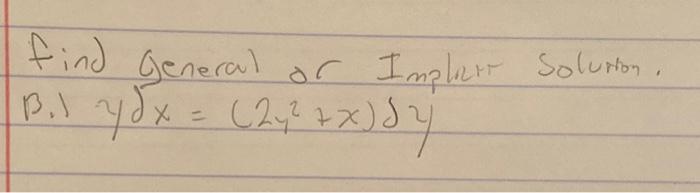 find General or Implicit Solution.
B.) ydx = (2y² + x)dy